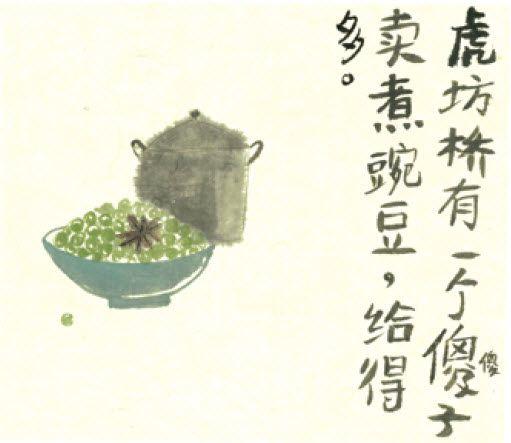 虎坊桥有一个傻子
卖煮豌豆，给得
多。
傻